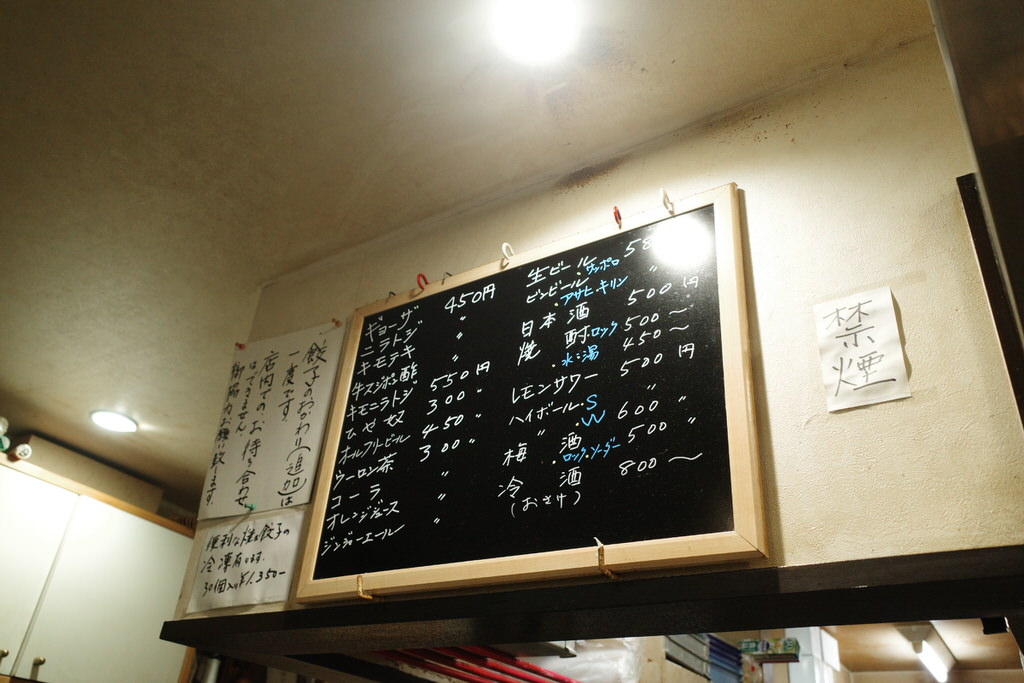 餃子のおかわり(追加)は
一度です。
店内でのお待ち合わせ
はできません。
御協力お願い致します。
便利な焼き餃子の
冷凍有ります。
30個入り¥1,350-
ギョーザ 450円
ニラトジ 〃
キモテキ 〃
牛スジポン酢 〃
キモニラトジ 550円
ひややっこ 300 〃
オールフリービール 450 〃
ウーロン茶 300 〃
コーラ 〃
オレンジジュース 〃
ジンジャーエール 〃
生ビール 58
ビンビール・サッポロ 〃
・アサヒ・キリン
日本酒 500円
焼酎ロック 500〜
・水・湯 450〜
レモンサワー 500円
ハイボール・S 〃
〃 ・W 600 〃
梅酒 500 〃
・ロック・ソーダー
冷酒 800〜
(おさけ)
禁煙